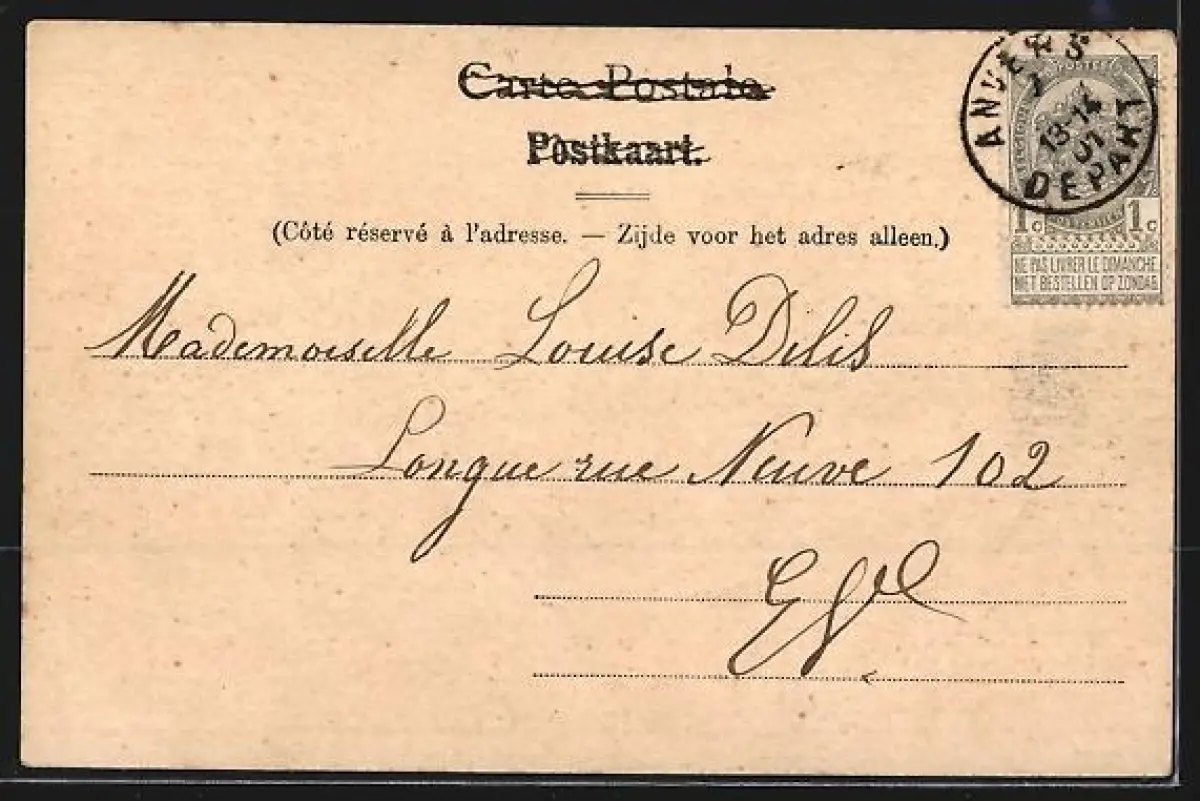 Carte Postale
Postkaart.
(Côté réservé à l'adresse. — Zijde voor het adres alleen.)
ANVERS
1
13-14
01
DEPART
POSTES
1c 1c
NE PAS LIVRER LE DIMANCHE.
NIET BESTELLEN OP ZONDAG.
Mademoiselle Louise Dilis
Longue rue Neuve 102
EV